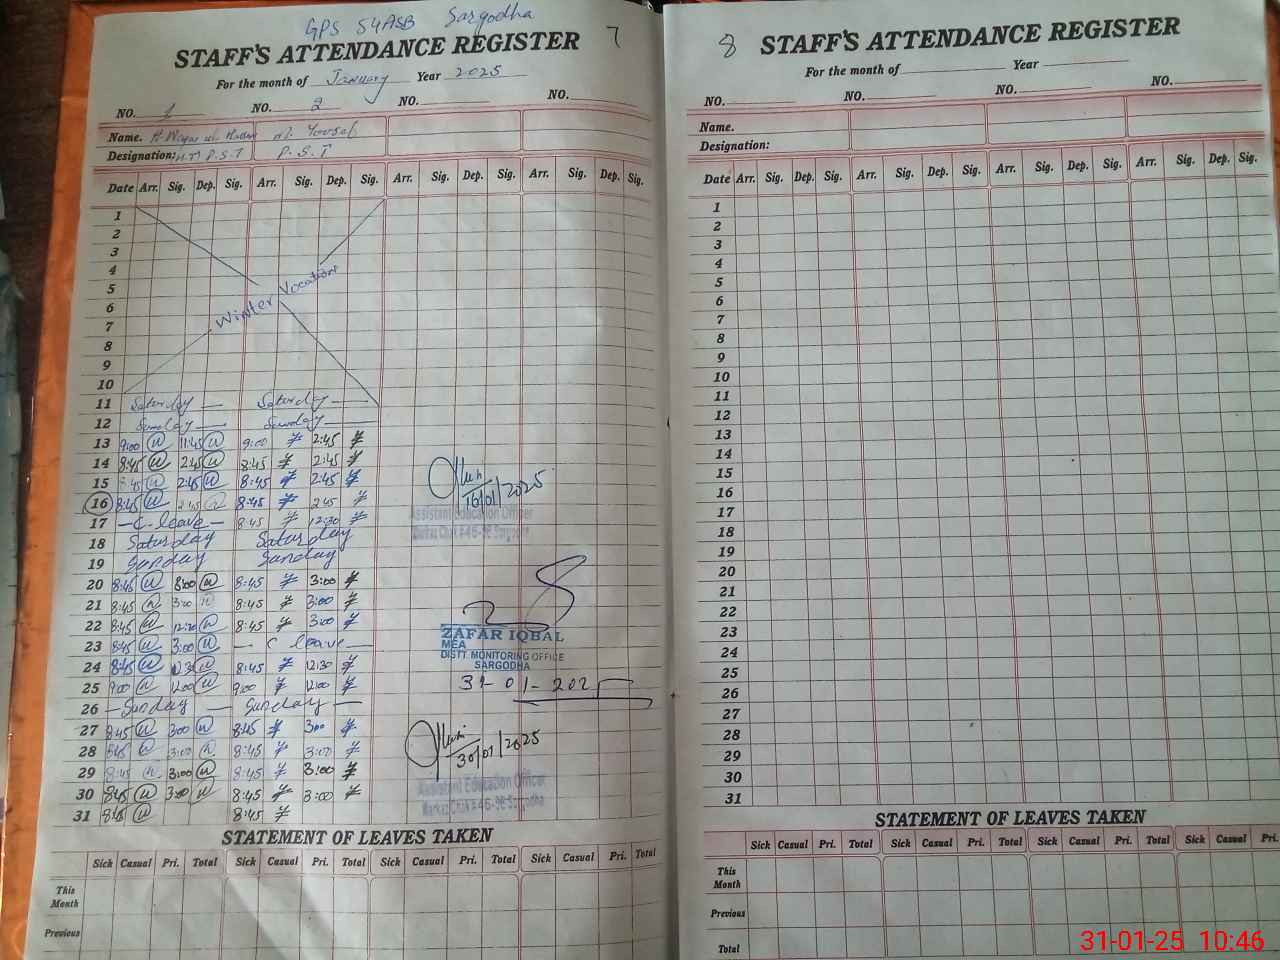 GPS 54ASB Sargodha
STAFF'S ATTENDANCE REGISTER 7
For the month of January Year 2025
NO. 1 NO. 2 NO. NO.
Name. H. Waqar ul Hassan M. Yousaf
Designation: H.T/ P.S.T P.S.T
Date Arr. Sig. Dep. Sig. Arr. Sig. Dep. Sig. Arr. Sig. Dep. Sig. Arr. Sig. Dep. Sig.
1
2
3
4
5
Winter Vocation
6
7
8
9
10
11 Saturday Saturday
12 Sunday Sunday
13 9:00 11:45 9:00 2:45
14 8:45 2:45 8:45 2:45
15 8:45 2:45 8:45 2:45
16 8:45 2:45 8:45 2:45
17 C-leave 8:45 12:30
18 Saturday Saturday
19 Sunday Sunday
20 8:45 3:00 8:45 3:00
21 8:45 3:00 8:45 3:00
22 8:45 12:30 8:45 3:00
23 8:45 3:00 C leave
24 8:45 8:45 12:30
25 9:00 12:00 9:00 12:00
26 Sunday Sunday
27 8:45 3:00 8:45 3:00
28 8:45 3:00 8:45 3:00
29 8:45 3:00 8:45 3:00
30 8:45 3:00 8:45 3:00
31 8:45 8:45
16/01/2025
Assistant Education Officer
Sargodha
ZAFAR IQBAL
MEA
DISTT. MONITORING OFFICE
SARGODHA
31-01-2025
30/01/2025
Assistant Education Officer
Sargodha
STATEMENT OF LEAVES TAKEN
Sick Casual Pri. Total Sick Casual Pri. Total Sick Casual Pri. Total Sick Casual Pri. Total
This Month
Previous
8 STAFF'S ATTENDANCE REGISTER
For the month of Year
NO. NO. NO. NO.
Name.
Designation:
Date Arr. Sig. Dep. Sig. Arr. Sig. Dep. Sig. Arr. Sig. Dep. Sig. Arr. Sig. Dep. Sig.
1
2
3
4
5
6
7
8
9
10
11
12
13
14
15
16
17
18
19
20
21
22
23
24
25
26
27
28
29
30
31
STATEMENT OF LEAVES TAKEN
Sick Casual Pri. Total Sick Casual Pri. Total Sick Casual Pri. Total Sick Casual Pri. Total
This Month
Previous
Total
31-01-25 10:46